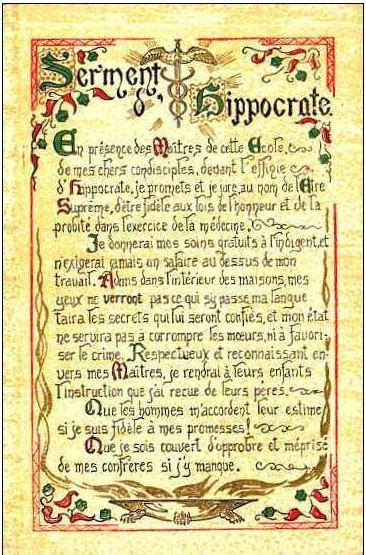 Serment
d'Hippocrate.
En présence des Maîtres de cette Ecole,
de mes chers condisciples, devant l'effigie
d'Hippocrate, je promets et je jure, au nom de l'Etre
Suprême, d'être fidèle aux lois de l'honneur et de la
probité dans l'exercice de la médecine.
Je donnerai mes soins gratuits à l'indigent, et
n'exigerai jamais un salaire au dessus de mon
travail. Admis dans l'intérieur des maisons, mes
yeux ne verront pas ce qui s'y passe, ma langue
taira les secrets qui lui seront confiés, et mon état
ne servira pas à corrompre les mœurs, ni à favori-
ser le crime. Respectueux et reconnaissant en-
vers mes Maîtres, je rendrai à leurs enfants
l'instruction que j'ai reçue de leurs pères.
Que les hommes m'accordent leur estime
si je suis fidèle à mes promesses!
Que je sois couvert d'opprobre et méprisé
de mes confrères si j'y manque.